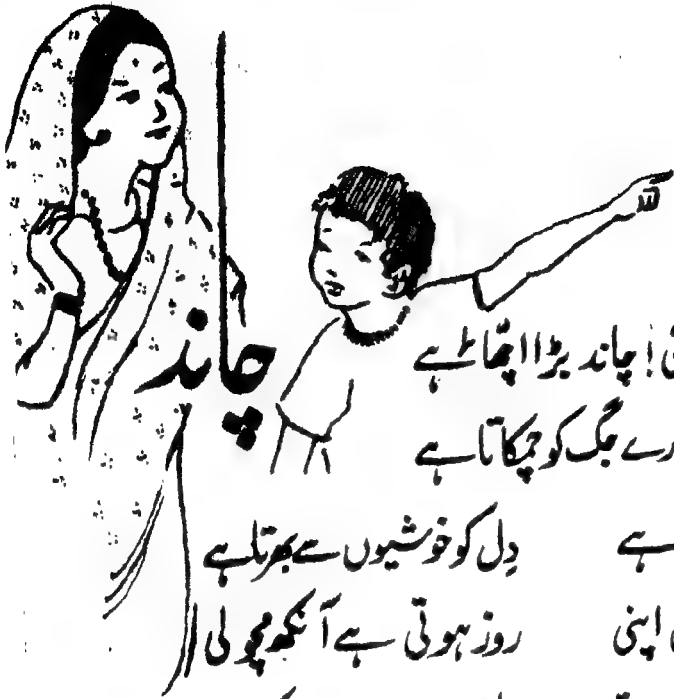 چاند
! چاند بڑا اچھا ہے
جگ کو چمکاتا ہے
ہے
دِل کو خوشیوں سے بھرتا ہے
اپنی
روز ہوتی ہے آنکھ مچولی